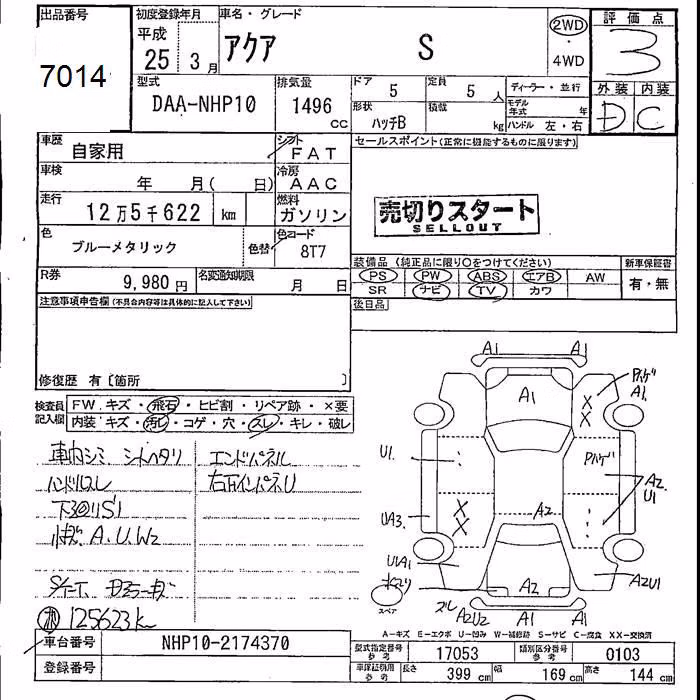 出品番号
7014
初度登録年月
平成
25 3月
車名・グレード
アクア S
2WD
・
4WD
評価点
3
外装 内装
D C
型式
DAA-NHP10
排気量
1496
CC
ドア 5
定員 5人
形状 ハッチB
積載 kg
ディーラー・並行
モデル年式 年
ハンドル 左・右
車歴 自家用
シフト FAT
車検 年 月( 日)
冷房 AAC
走行 12万5千622 km
燃料 ガソリン
色 ブルーメタリック
色替
色コード 8T7
R券 9,980円
名変通知期限 月 日
セールスポイント(正常に機能するものに限ります)
売切りスタート
SELLOUT
装備品 (純正品に限り○をつけてください)
新車保証書
PS PW ABS エアB AW
SR ナビ TV カワ
有・無
後日品
注意事項申告欄(不具合内容等は具体的に記入して下さい)
修復歴 有〔箇所 〕
検査員
記入欄
FW キズ・飛石・ヒビ割・リペア跡・×要
内装 キズ・汚レ・コゲ・穴・スレ・キレ・破レ
車内シミ シートヘタリ
エンドパネル
ハンドルスレ
下回りS1
A.U.W2
125623k
A1 A1
A1
Pハゲ
A1
X
X
U1
Pハゲ
A2
U1
X
X
A2
UA3
U1A1
A2
A2U1
スペア
A2U2 A1 A1
A-キズ E-エクボ U-凹み W-補修跡 S-サビ C-腐食 XX-交換済
車台番号 NHP10-2174370
登録番号
型式指定番号
参考
17053
類別区分番号
参考
0103
車検証創用
参考
長さ 399 cm
幅 169 cm
高さ 144 cm